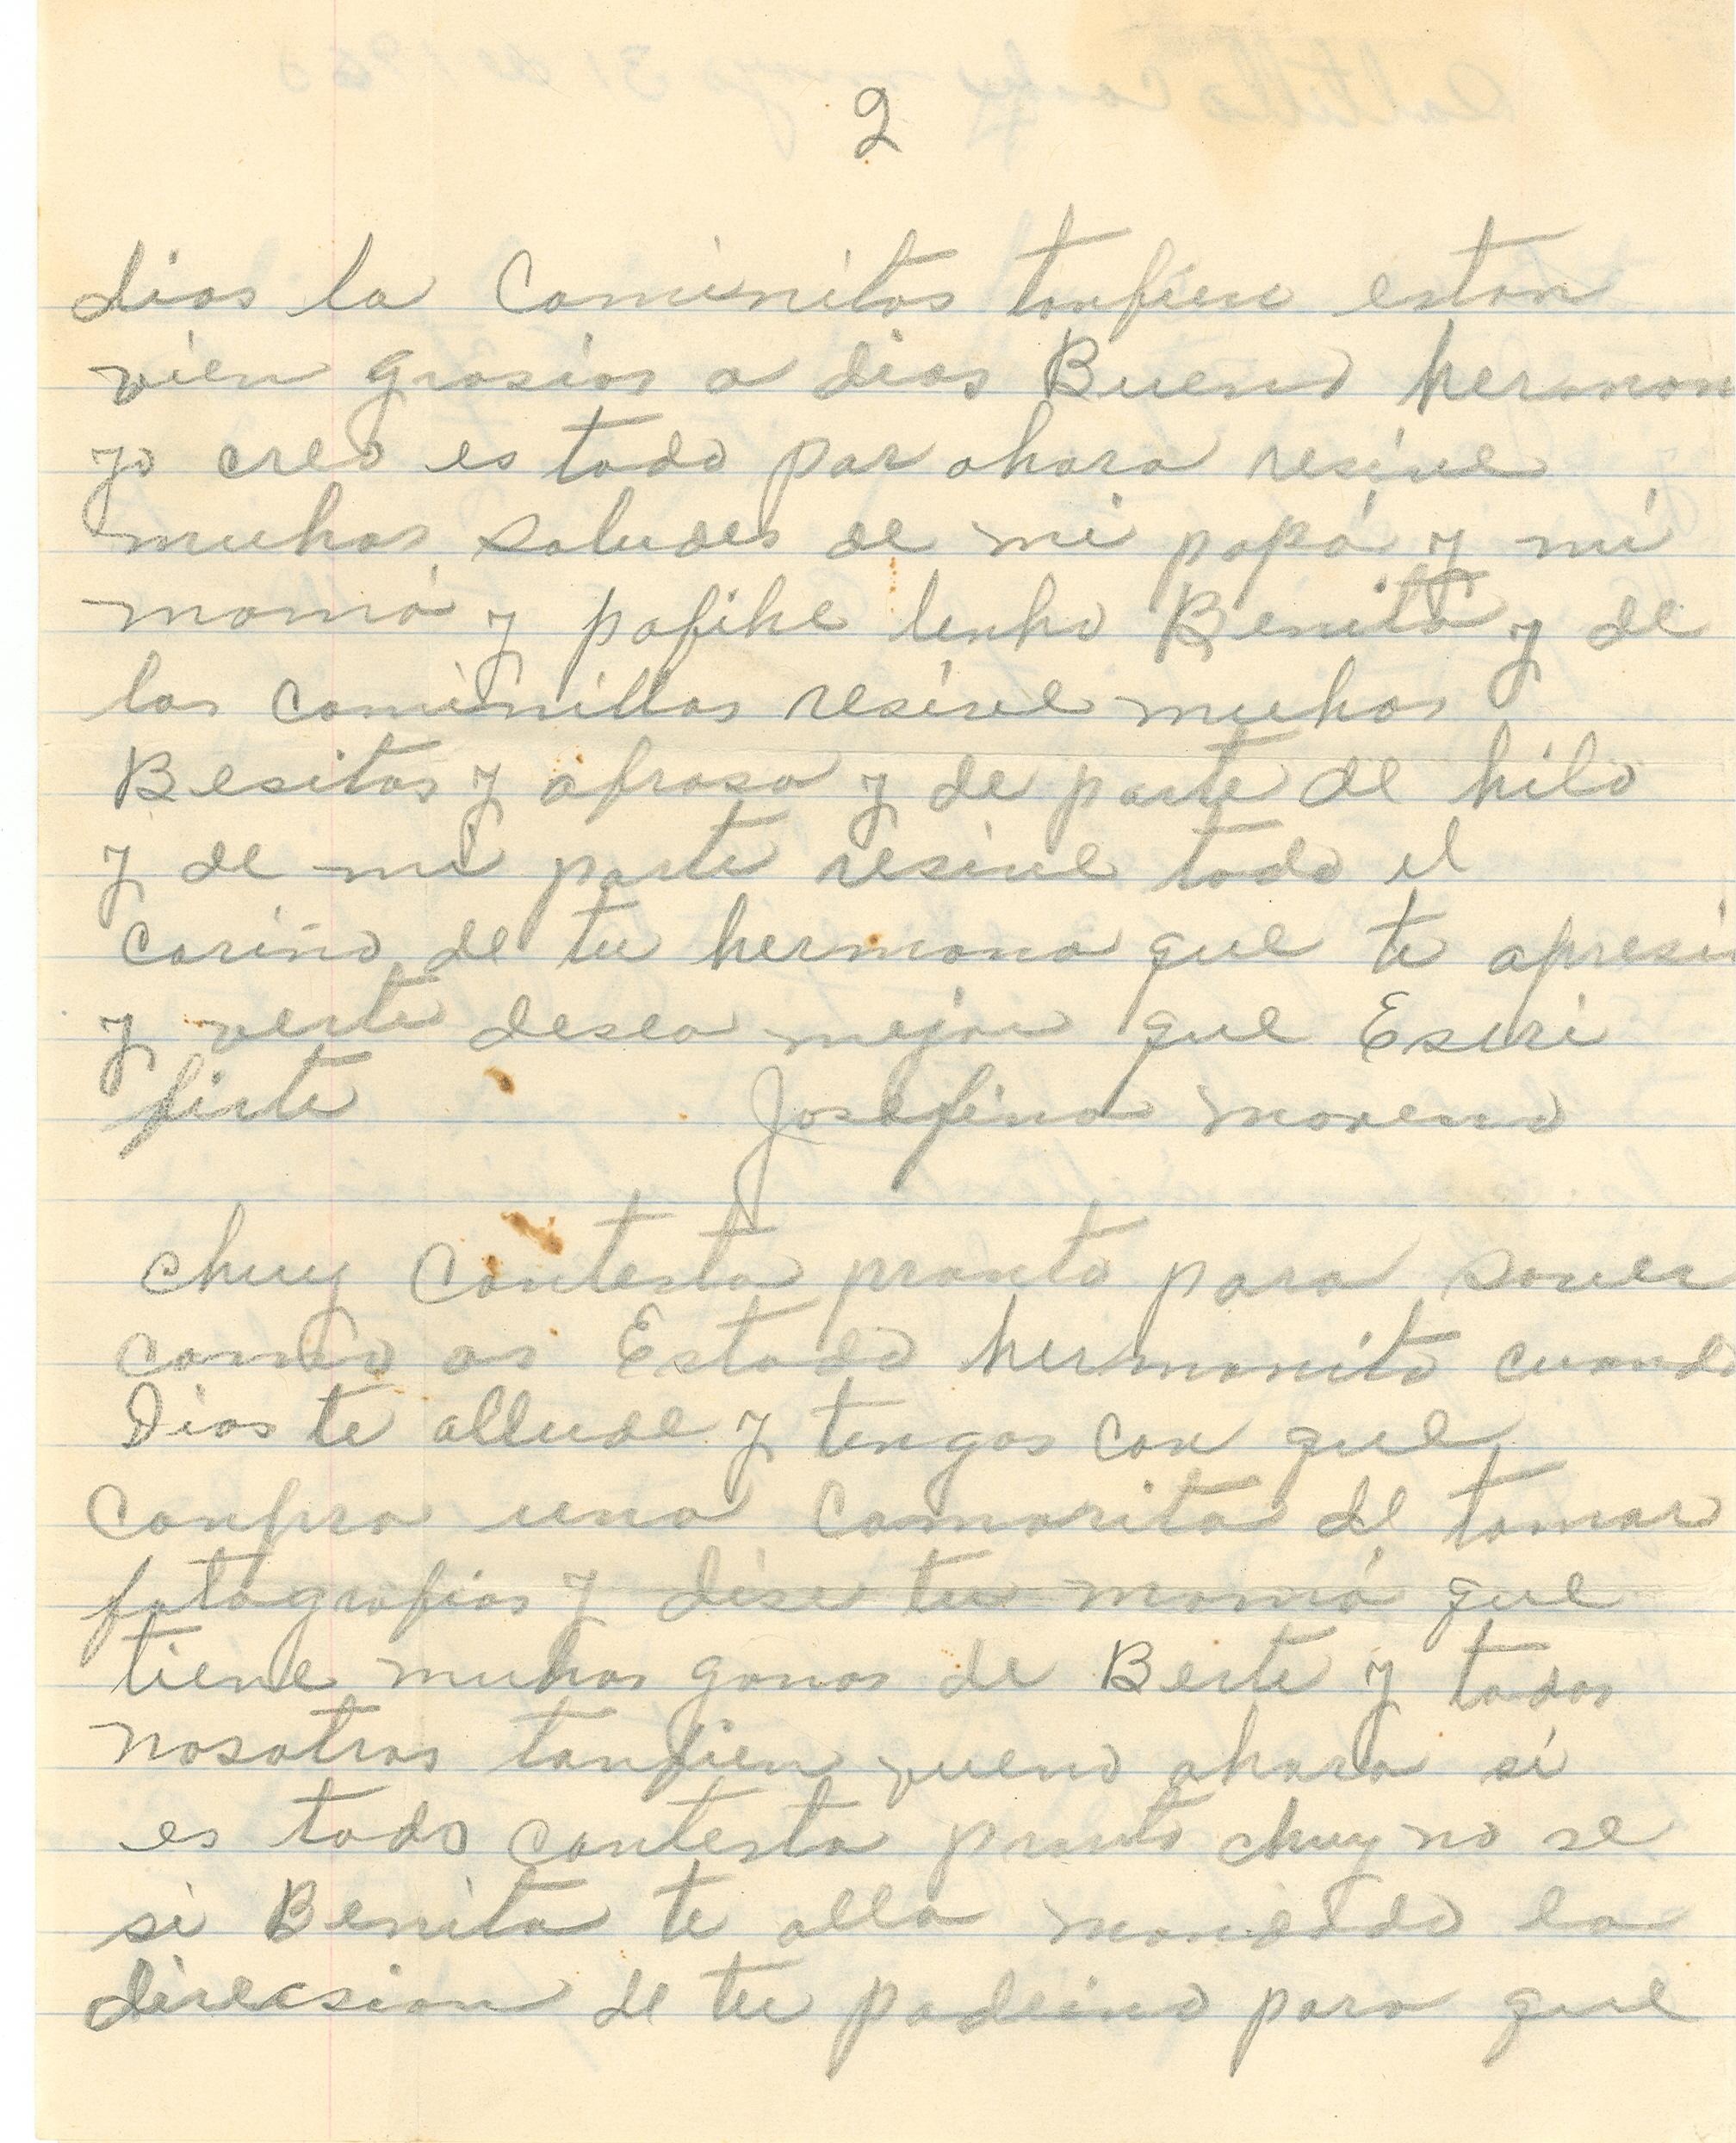 2
dios la Caminitos tanfien estan
vien grasias a dios Bueno herman
yo creo es todo por ahora resive
muchos saludes de mi papá y mi
mamá y pofike lenho Benito y de
los caminillos resive muchos
Besitos y afraso y de parte de hilo
y de mi parte resive todo el
cariño de tu hermana que te apresi
y verte desea mejor que Escri
firte Josefina moreno
chuy Contesta pronto para saver
como as Estado hermanito cuando
Dios te allude y tengas con que
Conpra una Camarita de tomar
fotografias y dise tu mamá que
tiene muchas ganas de Berte y todos
nosotros tanfien vueno ahora si
es todo contesta pronto chuy no se
si Benita te alla mandado la
direcsion de tu padrino para que